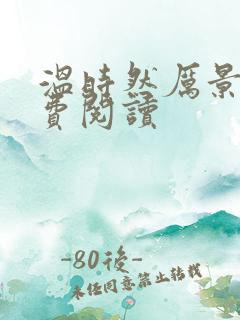 溫時然厲景
費閱讀
-80後-
未經同意禁止轉載